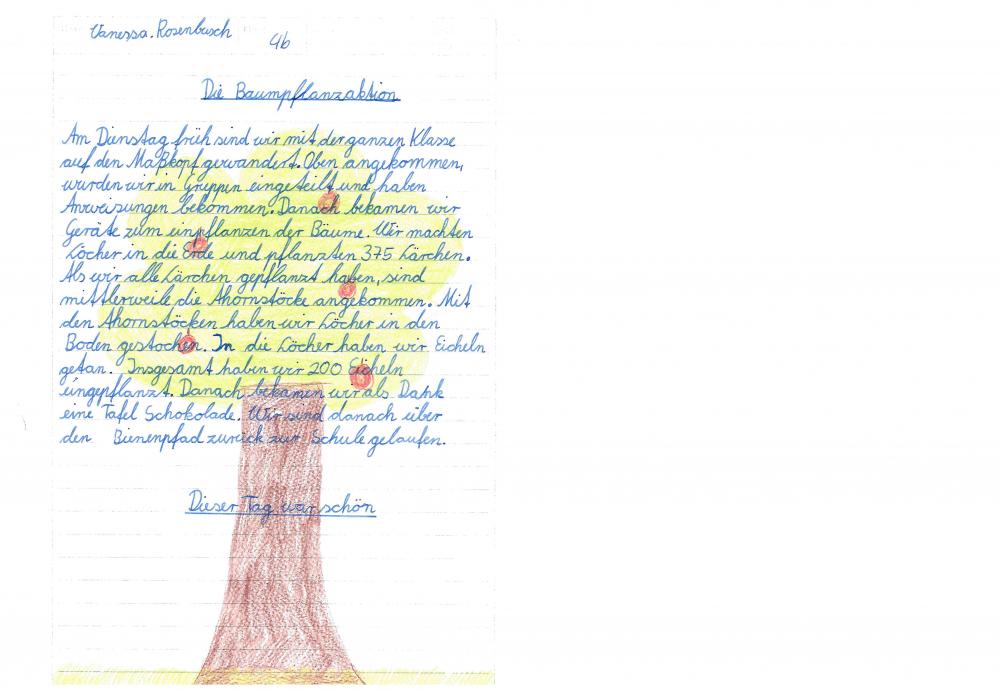 Vanessa. Rosenbusch
4b
Die Baumpflanzaktion
Am Dienstag früh sind wir mit der ganzen Klasse
auf den Maßkopf gewandert. Oben angekommen,
wurden wir in Gruppen eingeteilt und haben
Anweisungen bekommen. Danach bekamen wir
Geräte zum einpflanzen der Bäume. Wir machten
Löcher in die Erde und pflanzten 375 Lärchen.
Als wir alle Lärchen gepflanzt haben, sind
mittlerweile die Ahornstöcke angekommen. Mit
den Ahornstöcken haben wir Löcher in den
Boden gestochen. In die Löcher haben wir Eicheln
getan. Insgesamt haben wir 200 Eicheln
eingepflanzt. Danach bekamen wir als Dank
eine Tafel Schokolade. Wir sind danach über
den Bienenpfad zurück zur Schule gelaufen.
Dieser Tag war schön